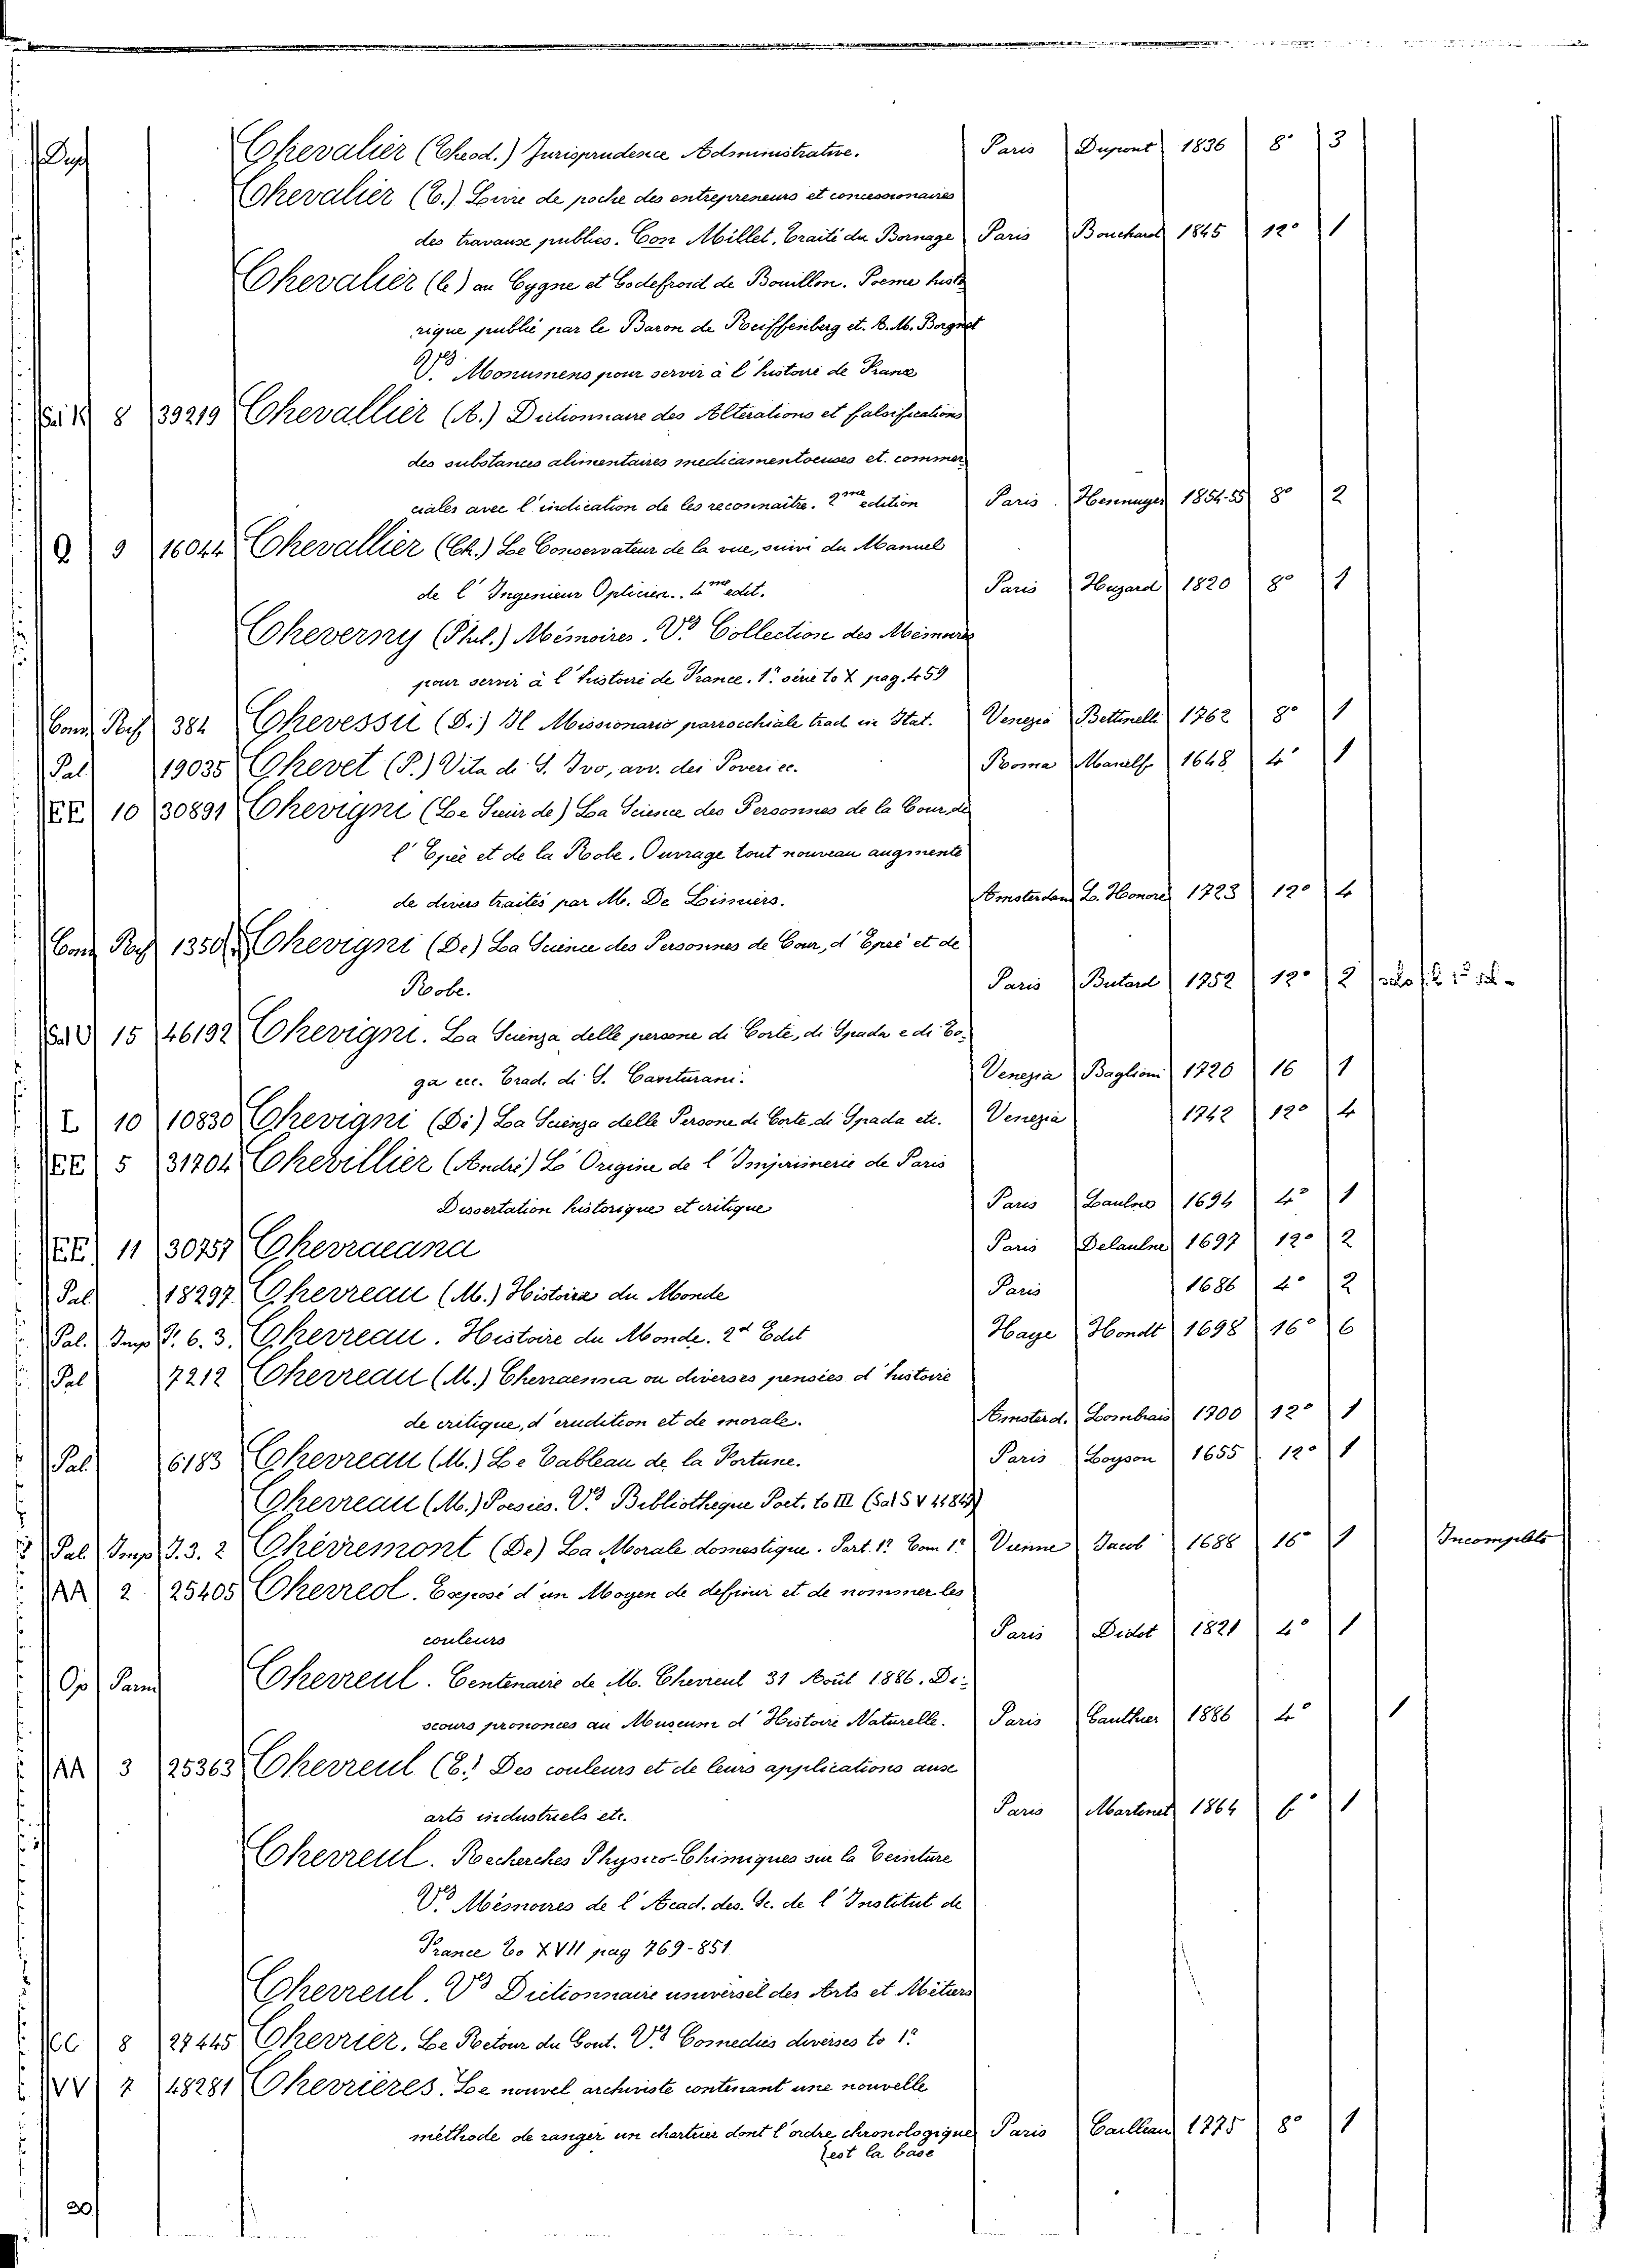 Dup Chevalier (Theod.) Jurisprudence Administrative. Paris Dupont 1836 8° 3
Chevalier (C.) Livre de poche des entrepreneurs et concessionaires
des travaux publics. Con Millet, Traité du Bornage Paris Bouchard 1845 12° 1
Chevalier (le) au Cygne et Godefroid de Bouillon. Poeme histo
rique publié par le Baron de Reiffenberg et. A. M. Borgnet
V.es Monumens pour servir à l'histoire de France
8 39219 Chevallier (A.) Dictionnaire des Alterations et falsifications
des substances alimentaires medicamenteuses et. commer
ciales avec l'indication de les reconnaître. 2me edition Paris Hennuyer 1854-55 8° 2
Q 9 16044 Chevallier (Ch.) Le Conservateur de la vue, suivi du Manuel
de l'Ingenieur Opticien. 4me edit. Paris Huzard 1820 8° 1
Cheverny (Phil.) Mémoires. V.es Collection des Mémoires
pour servir à l'histoire de France. 1e serie to X pag. 459
Con Ref 384 Chevessu (Di) Il Missionario parrocchiale trad. in Ital. Venezia Bettinelli 1762 8° 1
Pal. 19035 Chevet (P.) Vita di S. Ivo, avv. dei Poveri ec. Roma Manelfi 1648 4° 1
EE 10 30891 Chevigni (Le Sieur de) La Science des Personnes de la Cour, de
l'Epée et de la Robe. Ouvrage tout nouveau augmenté
de divers traités par M. De Limiers. Amsterdam L. Honoré 1723 12° 4
Con Ref 1350 Chevigni (De) La Science des Personnes de Cour, d'Epeé et de
Robe. Paris Butard 1752 12° 2
15 46192 Chevigni. La Scienza delle persone di Corte, di Spada e di To-
ga ecc. Trad. di S. Canturani. Venezia Baglioni 1720 16 1
I 10 10830 Chevigni (Di) La Scienza delle Persone di Corte di Spada etc. Venezia 1742 12° 4
EE 5 31704 Chevillier (André) L'Origine de l'Imprimerie de Paris
Dissertation historique et critique Paris Laulne 1694 4° 1
EE 11 30757 Chevraeana Paris Delaulne 1697 12° 2
Pal. 18297 Chevreau (M.) Histoire du Monde Paris 1686 4° 2
Pal. Imp P. 6. 3. Chevreau. Histoire du Monde. 2d Edit Haye Hondt 1698 16° 6
Pal 7212 Chevreau (M.) Chevraenna ou diverses pensées d'histoire
de critique, d'erudition et de morale. Amsterd. Lombrais 1700 12° 1
Pal. 6183 Chevreau (M.) Le Tableau de la Fortune. Paris Loyson 1655 12° 1
Chevreau (M.) Poesies. V.es Bibliotheque Poet. to III
Pal. Imp J. 3. 2 Chevremont (De) La Morale domestique. Part. 1e Tom 1e Vienne Jacob 1688 16° 1 Incompleto
AA 2 25405 Chevreol. Exposé d'un Moyen de definir et de nommer les
couleurs Paris Didot 1821 4° 1
Op Parm Chevreul. Centenaire de M. Chevreul 31 Août 1886. Di-
scours prononcés au Museum d'Histoire Naturelle. Paris Gauthier 1886 4° 1
AA 3 25363 Chevreul (E.) Des couleurs et de leurs applications aux
arts industriels etc. Paris Martinet 1864 f° 1
Chevreul. Recherches Physico-Chimiques sur la Teinture
V.es Mémoires de l'Acad. des. Sc. de l'Institut de
France To XVII pag 769-851
Chevreul. V.es Dictionnaire universel des Arts et Métiers
CC 8 27445 Chevrier. Le Retour du Gout. V.es Comedies diverses to 1e
VV 7 48281 Chevrières. Le nouvel archiviste contenant une nouvelle
méthode de ranger un chartrier dont l'ordre chronologique Paris Cailleau 1775 8° 1
est la base
20